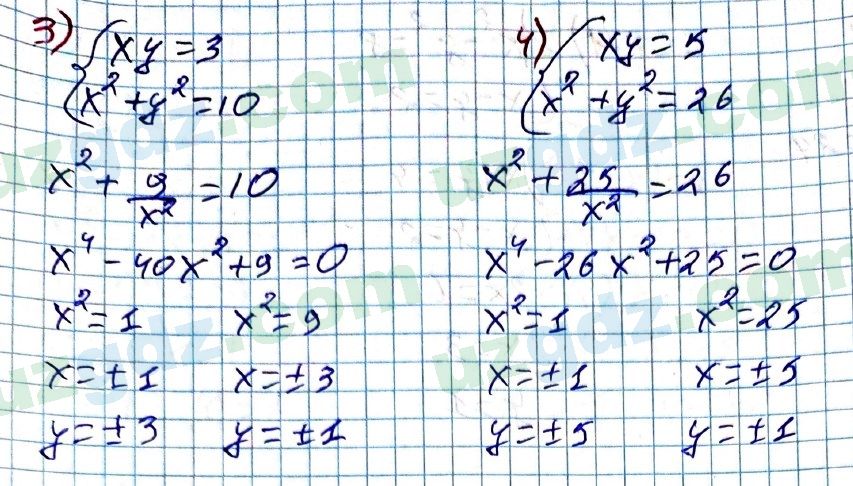 3) { xy = 3
x² + y² = 10
x² + 9/x² = 10
x⁴ - 40x² + 9 = 0
x² = 1 x² = 9
x = ±1 x = ±3
y = ±3 y = ±1
4) { xy = 5
x² + y² = 26
x² + 25/x² = 26
x⁴ - 26x² + 25 = 0
x² = 1 x² = 25
x = ±1 x = ±5
y = ±5 y = ±1
uzgdz.com
uzgdz.com
uzgdz.com
uzgdz.com